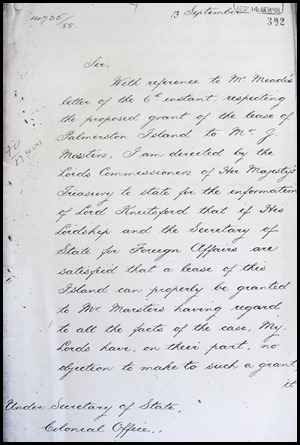 14735/88.
13 September
392
Sir,
With reference to Mr. Meade's
letter of the 6th instant, respecting
the proposed grant of the lease of
Palmerston Island to Mr. J.
Masters, I am directed by the
Lords Commissioners of Her Majesty's
Treasury to state for the information
of Lord Knutsford that if His
Lordship and the Secretary of
State for Foreign Affairs are
satisfied that a lease of this
Island can properly be granted
to Mr. Marsters having regard
to all the facts of the case, My
Lords have, on their part, no
objection to make to such a grant,
it
Under Secretary of State,
Colonial Office.